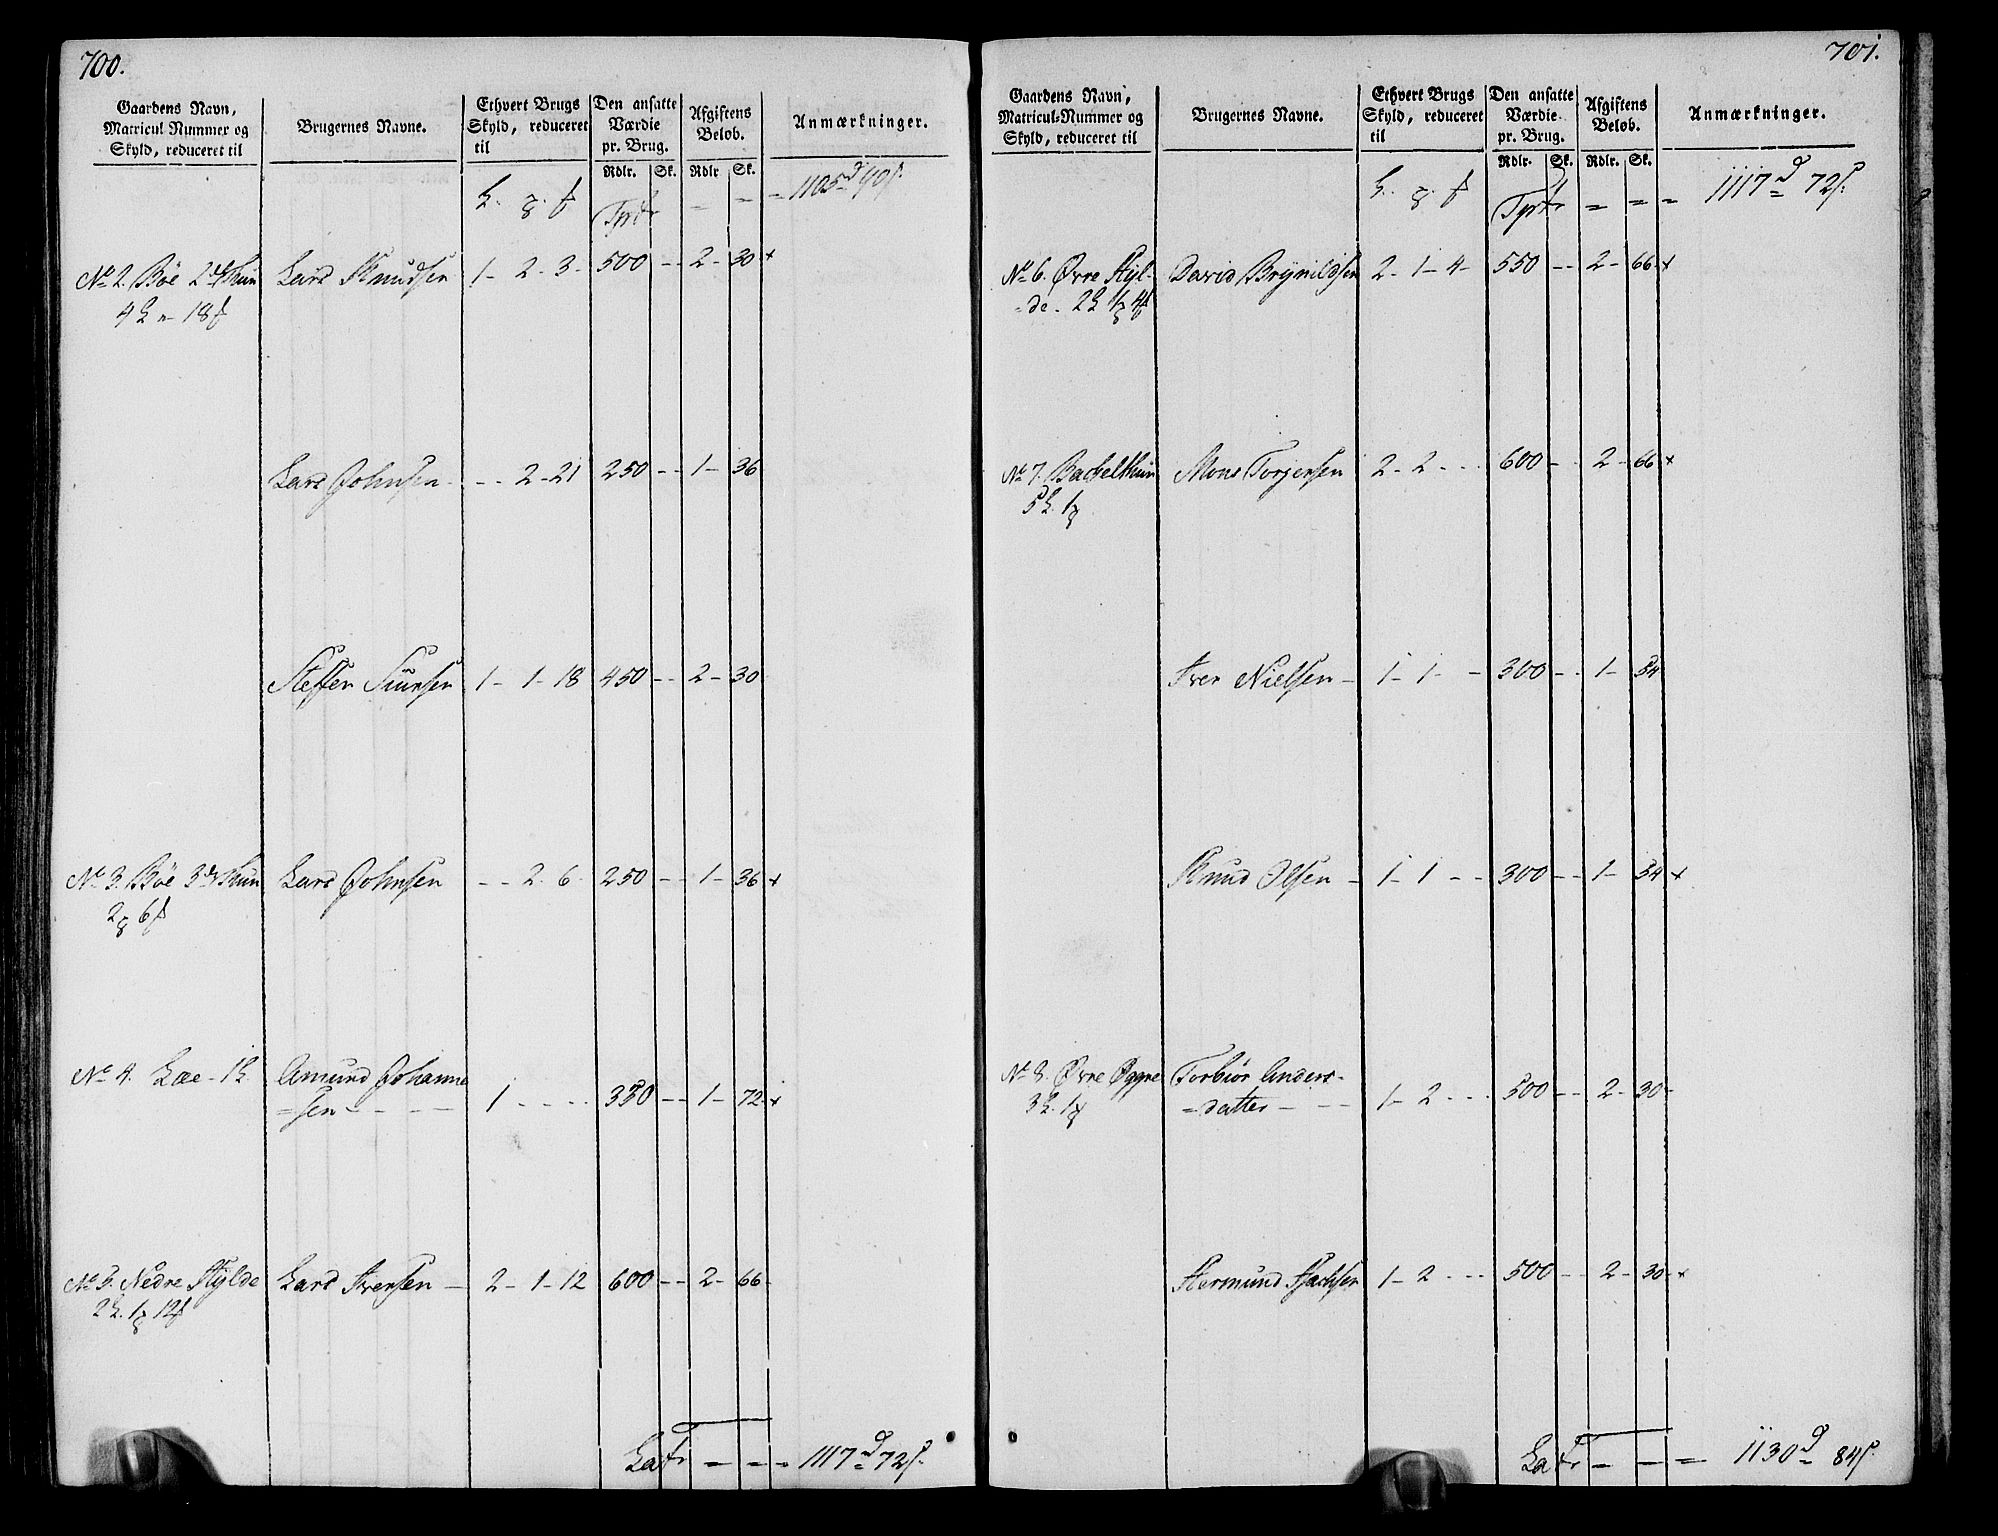 700.
Gaardens Navn,
Matricul Nummer og
Skyld, reduceret til
Brugernes Navne.
Ethvert Brugs
Skyld, reduceret
til
Den ansatte
Værdie
pr. Brug.
Rdlr. Sk.
Afgiftens
Beløb.
Rdlr Sk.
Anmærkninger.
Tprtr - - = 1105
No 2. Böe 2det Thun Lars Knudsen 1 - 2 - 3 - 500 - - 2 - 30 +
Lars Johnsen - - - 2 - 21 250 - - 1 - 36
Steffen 1 - 1 - 18 450 - - 2 - 30
No 3. Böe 3de Thun Lars Johnsen - - 2 - 6 - 250 - - 1 - 36 +
No 4. Lae - Amund Johanne
=sen - - - - 1 - - - - 350 - - 1 - 72 +
No 5. Nedre Hylde Lars Iversen - 2 - 1 - 12 600 - - 2 - 66 -
LaTr - - - 1117 72
701.
Gaardens Navn,
Matricul-Nummer og
Skyld, reduceret til
Brugernes Navne.
Ethvert Brugs
Skyld, reduceret
til
Den ansatte
Værdie
pr. Brug.
Rdlr. Sk.
Afgiftens
Beløb.
Rdlr. Sk.
Anmærkninger.
Tprtr = = = 1117 72
No 6. Øvre Hyl- David Brynildsen 2 - 1 - 4 - 550 - - 2 - 66 +
=de.
No 7. Mons Torgersen 2 - 2 - - - 600 - - 2 - 66 +
Iver Nielsen - 1 - 1 - - 300 - - 1 - 54
Knud Olsen - 1 - 1 - - 300 - - 1 - 54 +
No 8. Øvre Torbiør Anders-
=datter - - - 1 - 2 - - - 500 - - 2 - 30 -
Hermund 1 - 2 - - - 500 - - 2 - 30 - +
LaTr - - = 1130 84